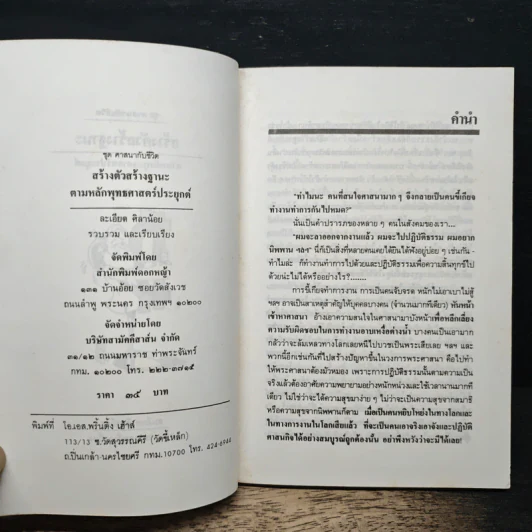 ชุด ศาสนากับชีวิต
สร้างตัวสร้างฐานะ
ตามหลักพุทธศาสตร์ประยุกต์
ละเอียด ศิลาน้อย
รวบรวม และเรียบเรียง
จัดพิมพ์โดย
สำนักพิมพ์ดอกหญ้า
๑๓๑ บ้านอ้อย ซอยวัดสังเวช
ถนนลำพู พระนคร กรุงเทพฯ ๑๐๒๐๐
จัดจำหน่ายโดย
บริษัทสามัคคีสาส์น จำกัด
๓๑/๑๒ ถนนมหาราช ท่าพระจันทร์
กทม. ๑๐๒๐๐ โทร. ๒๒๒-๓๗๑๕
ราคา ๓๕ บาท
พิมพ์ที่ โอ.เอส.พริ้นติ้ง เฮ้าส์
113/13 ซ.วัดสุวรรณคีรี (วัดขี้เหล็ก)
ถ.ปิ่นเกล้า-นครไชยศรี กทม.10700 โทร. 424-6944
คำนำ
"ทำไมนะ คนที่สนใจศาสนามาก ๆ จึงกลายเป็นคนขี้เกียจ
ทำงานทำการกันไปหมด?"
นั่นเป็นคำปรารภของหลาย ๆ คนในสังคมของเรา...
"ผมจะลาออกจากงานแล้ว ผมจะไปปฏิบัติธรรม ผมอยาก
นิพพาน ฯลฯ" นี่ก็เป็นสิ่งที่หลายคนเคยได้ยินได้ฟังอยู่บ่อย ๆ เช่นกัน -
ทำไมล่ะ ก็ทำงานทำการไปด้วยและปฏิบัติธรรมเพื่อความสิ้นทุกข์ไป
ด้วยน่ะไม่ได้หรืออย่างไร?.......
การขี้เกียจทำการงาน การเป็นคนจับจรด หนักไม่เอาเบาไม่สู้
ฯลฯ อาจเป็นสาเหตุสำคัญให้บุคคลบางคน (จำนวนมากทีเดียว) หันหน้า
เข้าหาศาสนา อ้างเอาความสนใจในศาสนามาบังหน้าเพื่อหลีกเลี่ยง
ความรับผิดชอบในการทำงานอาบเหงื่อต่างน้ำ บางคนเป็นเอามาก
กว่าว่าจะล้มเหลวทางโลกเลยหนีไปบวชเป็นพระเสียเลย ฯลฯ และ
พวกนี้อีกเช่นกันที่ไปสร้างปัญหาขึ้นในวงการพระศาสนา คือไปทำ
ให้พระศาสนาต้องมัวหมอง เพราะการปฏิบัติธรรมนั้นตามความเป็น
จริงแล้วต้องอาศัยความพยายามอย่างหนักหน่วงและใช้เวลานานมากที
เดียว ไม่ใช่ว่าจะได้ความสุขมาง่าย ๆ ไม่ว่าจะเป็นความสุขจากสมาธิ
หรือความสุขจากนิพพานก็ตาม เมื่อเป็นคนหยิบโหย่งในทางโลกและ
ในทางการงานในโลกเสียแล้ว ที่จะเป็นคนเอาจริงเอาจังและปฏิบัติ
ศาสนกิจได้อย่างสมบูรณ์ถูกต้องนั้น อย่าพึงหวังว่าจะมีได้เลย!